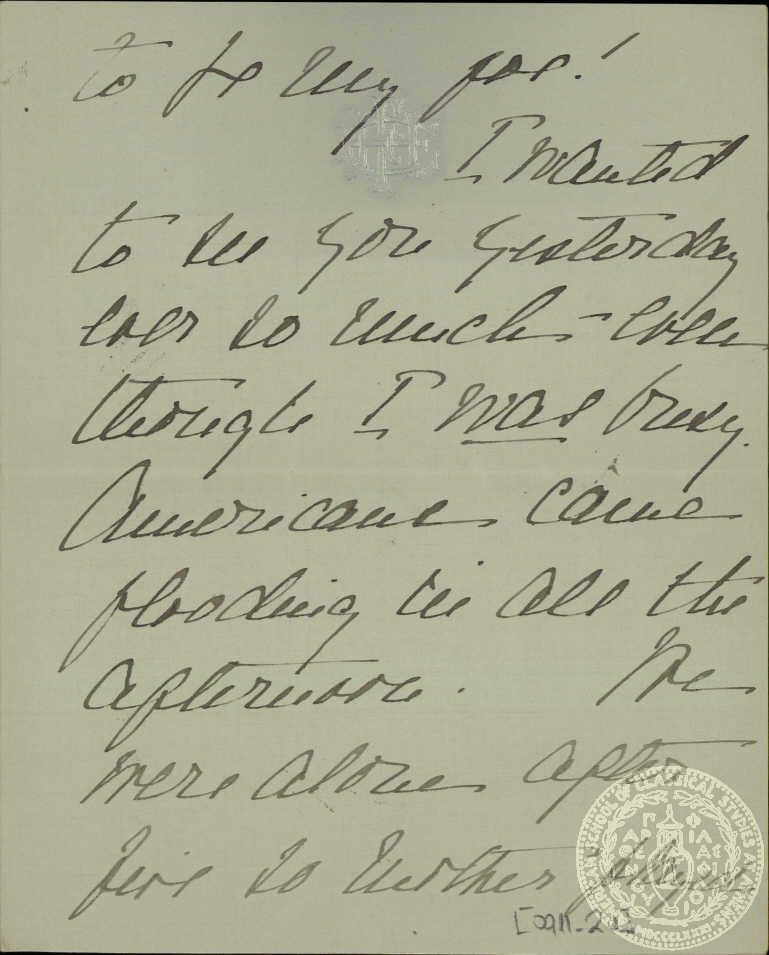 to be my foe!
I wanted
to see you yesterday
ever so much - even
though I was busy.
Americans came
flooding in all the
afternoon. We
were alone after
five so Mother
SCHOOL OF CLASSICAL STUDIES AT